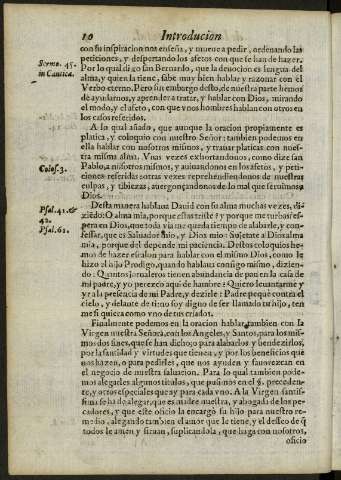 10 Introducion
con su inspiracion nos enseña, y mueue a pedir, ordenando las
peticiones, y despertando los afetos con que se han de hazer.
Serm. 45. in Cantica.
Por lo qual digo san Bernardo, que la deuocion es lengua del
alma, y quien la tiene, sabe muy bien hablar y razonar con el
Verbo eterno. Pero sin embargo desto, de nuestra parte hemos
de ayudarnos, y aprender a tratar, y hablar con Dios, mirando
el modo, y el afeto, con que vnos hombres hablan con otros en
los casos referidos.
A lo qual añado, que aunque la oracion propiamente es
platica, y coloquio con nuestro Señor: tambien podemos en
ella hablar con nosotros mismos, y trauar platicas con nues-
tra misma alma. Vnas vezes exhortandonos, como dize san
Colos. 3.
Pablo, a nosotros mismos, y auiuandonos en los afetos, y peti-
ciones referidas otras vezes reprehendiendonos de nuestras
culpas, y tibiezas, auergonçandonos de lo mal que seruimos a
Dios.
Psal. 41. &
42.
Psal. 61.
Desta manera hablaua Dauid con su alma muchas vezes, di-
ziẽdo: O alma mia, porque estas triste? y porque me turbas? es-
pera en Dios, que toda via me queda tiempo de alabarle, y con-
fessar, que es Saluador mio, y Dios mio: Sujetate a Dios alma
mia, porque del depende mi paciencia. Destos coloquios he-
mos de hazer escalon para hablar con el mismo Dios, como le
hizo el hijo Prodigo, quando hablaua consigo mismo, dizien-
do: Quantos jornaleros tienen abundancia de pan en la casa de
mi padre, y yo perezco aqui de hambre? Quiero leuantarme y
yr a la presencia de mi Padre, y dezirle: Padre pequè contra el
cielo, y delante de ti no soy digno de ser llamado tu hijo, ten
me si quiera como vno de tus criados.
Finalmente podemos en la oracion hablar tambien con la
Virgen nuestra Señora, con los Angeles, y Santos, para los mis-
mos dos fines, que se han dicho, o para alabarlos y bendezirlos,
por la santidad y virtudes que tienen, y por los beneficios que
nos hazen, o para pedirles, que nos ayuden y fauorezcan en
el negocio de nuestra saluacion. Para lo qual tambien pode-
mos alegarles algunos titulos, que pusimos en el §. preceden-
te, y otros especiales que ay para cada vno. A la Virgen santis-
sima se ha de alegar, que es madre nuestra, y abogada de los pe-
cadores, y que este oficio la encargò su hijo para nuestro re-
medio, alegando tambien el amor que le tiene, y el desseo de q̃
todos le amen y siruan, suplicandola, que haga con nosotros,
oficio